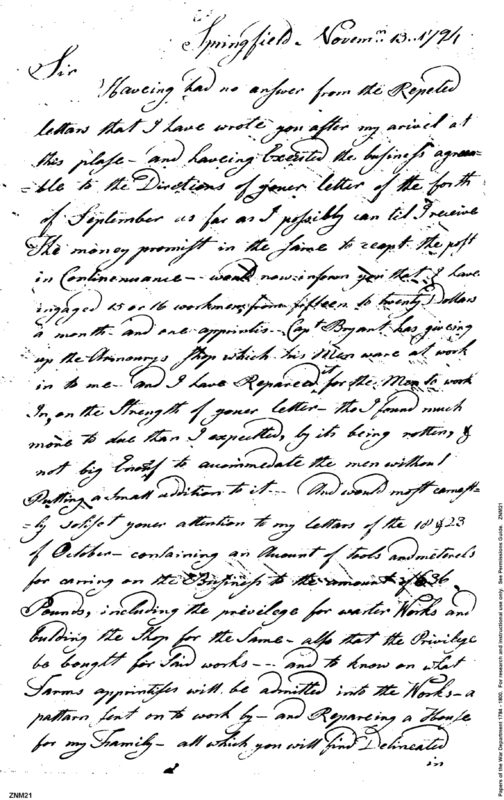 Springfield - Novemr. 13. 1794
Sir
Haveing had no answer from the Repeted
letters that I have wrote you after my arivel at
this plase - and haveing Executed the business agreea-
=ble to the Directions of youer letter of the forth
of September as far as I possibly can til I receive
The money promist in the same to except the post
in Continenuance -- would now inform you that I have
ingaged 15 or 16 workmen, from fifteen to twenty Dollars
a month - and one apprintis - Capt Bryant has giveing
up the Armourys Shop which his Men ware at work
in to me - and I have Repareed it for the Men to work
In, on the Strength of youer letter - tho I found much
more to due than I expected, by its being rotten, &
not big Enouf to accommedate the men without
Putting a small addition to it -- And would most earnest=
=ly solisit youer attention to my letters of the 18 & 23
of October - containing an Amount of tools and meterels
for carring on the Business to the amount of 1636
Pounds, including the privilege for warter Works and
bulding the Shop for the Same - also that the Privilege
be bought for said works -- and to know on what
Tarms apprintises will be admitted into the Works - a
pattarn sent on to work by - and Repareing a House
for my Framily - all which you will find Delineated
in
ZNM21
Papers of the War Department 1784 - 1800. For research and instructional use only. See Permissions Guide. ZNM21